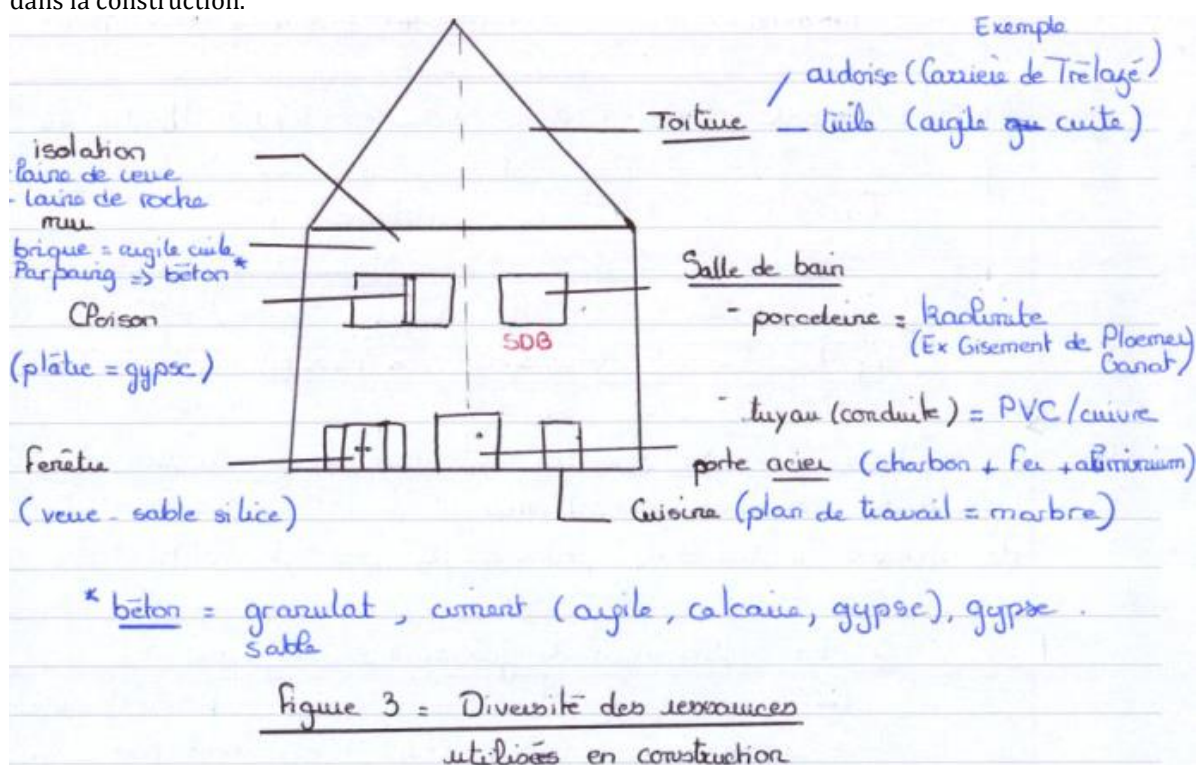 dans la construction.
Exemple
ardoise (Carrière de Trélazé)
Toiture
tuile (argile cuite)
isolation
laine de verre
- laine de roche
mur
brique = argile cuite
Parpaing => béton *
Cloison
(plâtre = gypse)
Fenêtre
(verre - sable silice)
SDB
Salle de bain
- porceleine = kaolinite
(Ex Gisement de Ploemeur
- tuyau (conduite) = PVC/cuivre
porte acier (charbon + Fer + aluminium)
Cuisine (plan de travail = marbre)
* béton = granulat, ciment (argile, calcaire, gypse), gypse.
sable
Figure 3 = Diversité des ressources
utilisées en construction